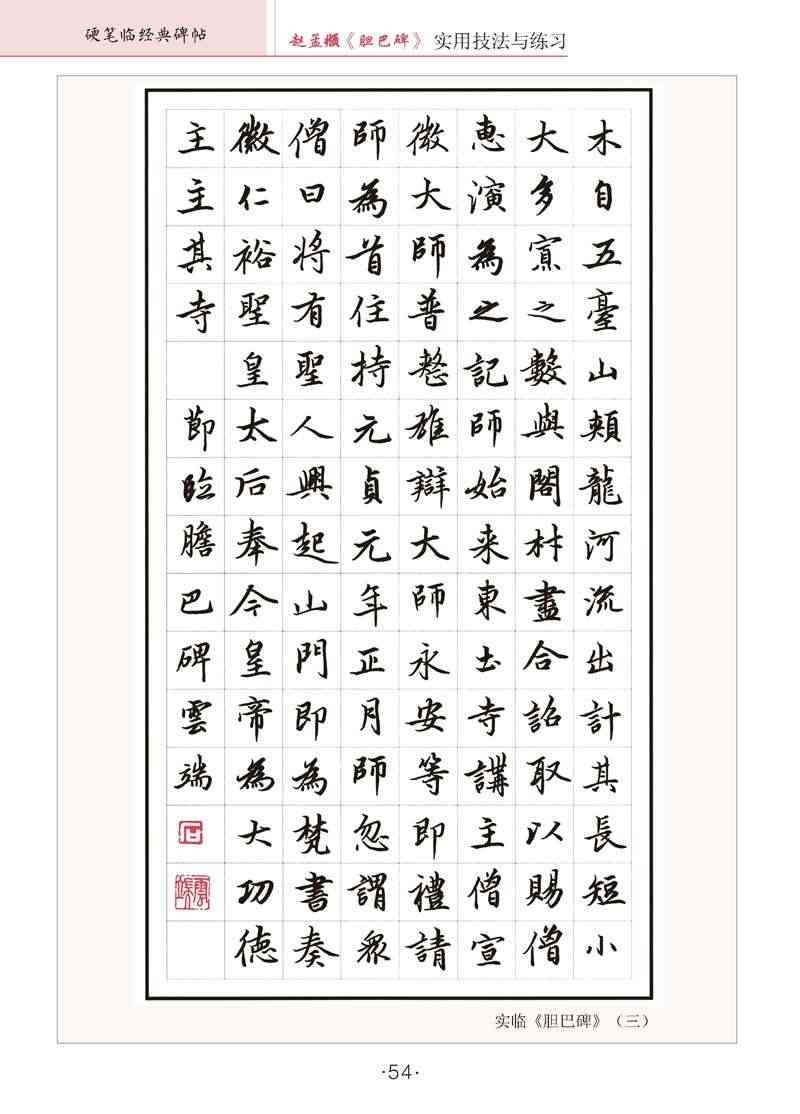 硬笔临经典碑帖
赵孟頫《胆巴碑》 实用技法与练习
木自五臺山頰龍河流出計其長短小
大多寡之數與閣材盡合詔取以賜僧
惠演為之記師始来東土寺講主僧宣
微大師普整雄辯大師永安等即禮請
師為首住持元貞元年正月師忽謂眾
僧曰将有聖人興起山門即為梵書奏
徽仁裕聖皇太后奉今皇帝為大功德
主主其寺
節臨膽巴碑雲端
石
雲端
实临《胆巴碑》（三）
·54·